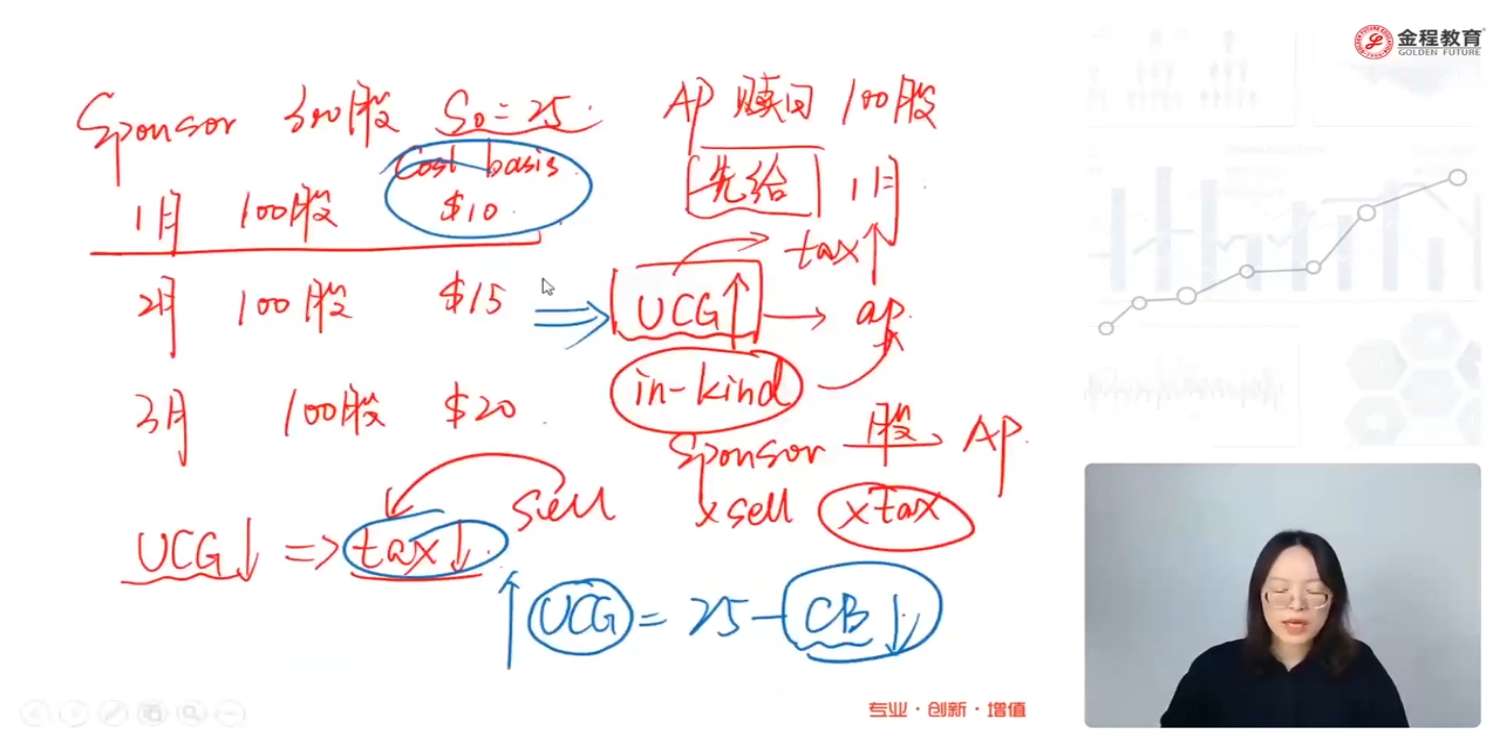 金程教育
GOLDEN FUTURE
Sponsor 300股 S₀=25
AP 赎回 100股
Cost basis
1月 100股 $10
先给 1月
tax↑
2月 100股 $15
UCG↑ → ap
in-kind
3月 100股 $20
Sponsor 股 AP
x sell xtax
sell
UCG↓ => tax↓
↑UCG = 25 - CB↓
专业·创新·增值